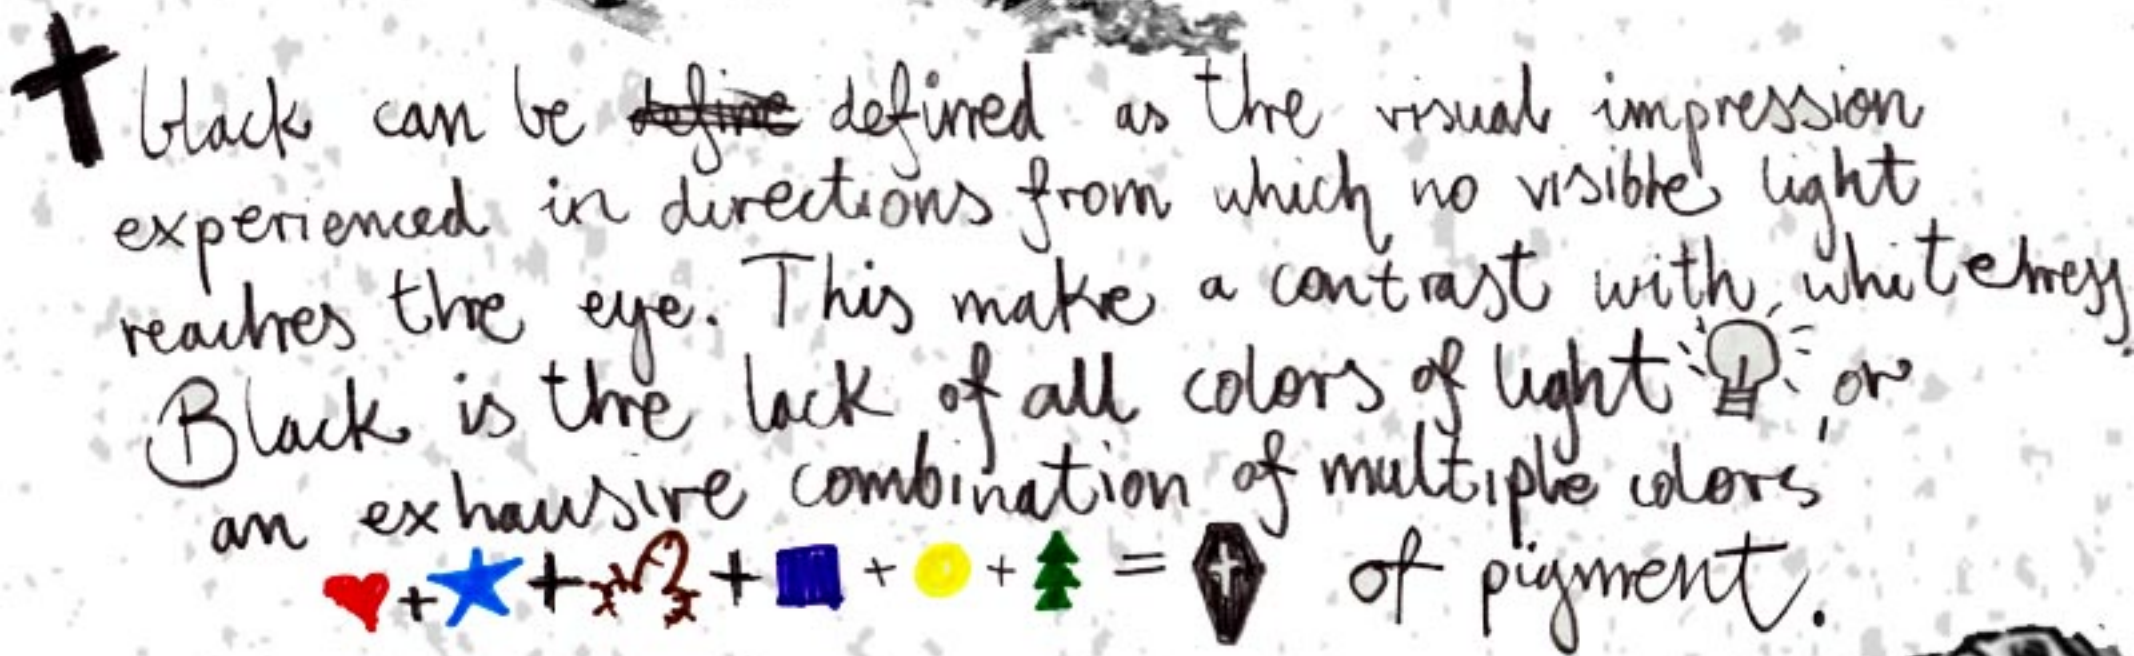 black can be define defined as the visual impression
experienced in directions from which no visible light
reaches the eye. This make a contrast with whiteness.
Black is the lack of all colors of light, or
an exhausive combination of multiple colors
of pigment.